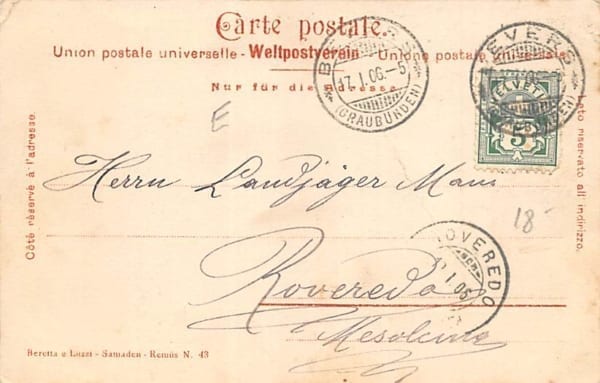 Carte postale.
Union postale universelle - Weltpostverein - Unione postale universale
Nur für die Adresse
BEVERS
17. I. 06.-5
(GRAUBÜNDEN)
BEVERS
(GRAUBÜNDEN)
HELVETIA
5
E
Côté réservé à l'adresse.
Lato riservato all indirizzo.
Herrn Landjäger
18-
ROVEREDO
I. 06
Roveredo
Mesolcina
Beretta e Luzzi - Samaden - Remüs N. 43